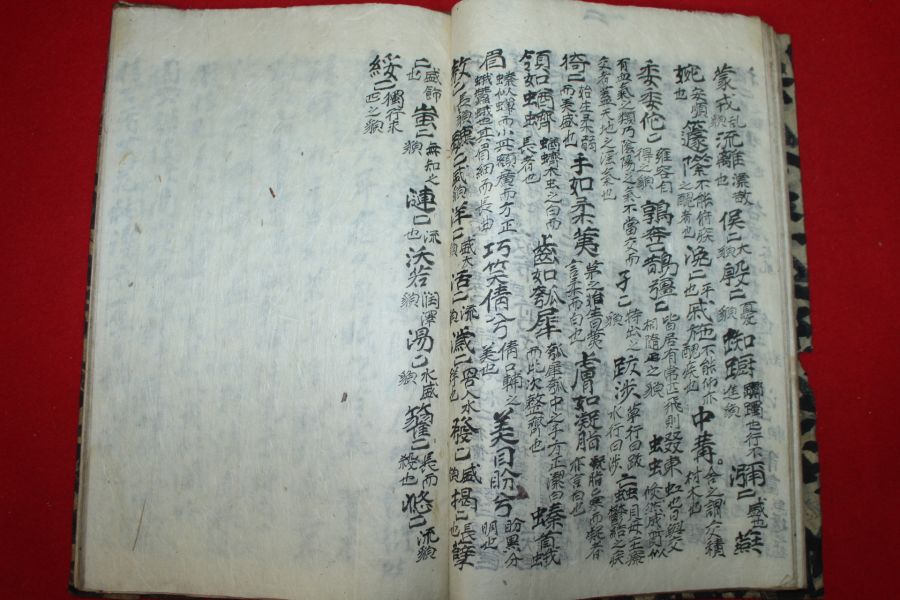 蒙戎乱貌 流離漂散也 俟二大貌 殷二憂貌 踟躕躑躅也行不進貌 瀰二盛也 燕
婉安順也 籧篨不能俯疾之醜者也 浼二平也 戚施不能仰醜疾也 中冓舍之謂交積材木也
委委佗二雍容自得之貌 鶉奔二鵲彊二皆居有常匹飛則相隨之貌 蝃蝀虹也日與雨交倏然成質似
有血氣之類乃陰陽之氣不當交而交者蓋天地之淫氣也 孑二特出之貌 跋涉草行曰跋水行曰涉 蝱貝母主療鬱結之疾
猗二始生柔弱而美盛也 手如柔荑茅之始生曰荑言柔而白也 膚如凝脂脂寒而凝者亦言白也
領如蝤蠐蝤蠐木虫之白而長者也 齒如瓠犀瓠犀瓠中之子方正潔白而比次整齊也 螓首蛾
眉螓似蟬而小其額廣而方正蛾蠶蛾也其眉細而長曲 巧笑倩兮倩口輔之美也 美目盼兮盼黑分明也
敖二長貌 鑣二盛貌 洋二盛大貌 活二流貌 濊二罟入水聲也 發二盛貌 揭二長也 孽
二盛飾也 蚩二無知之貌 漣二流也 沃若潤澤貌 湯二水盛貌 籊二長而殺也 悠二流貌
綏二獨行求匹之貌